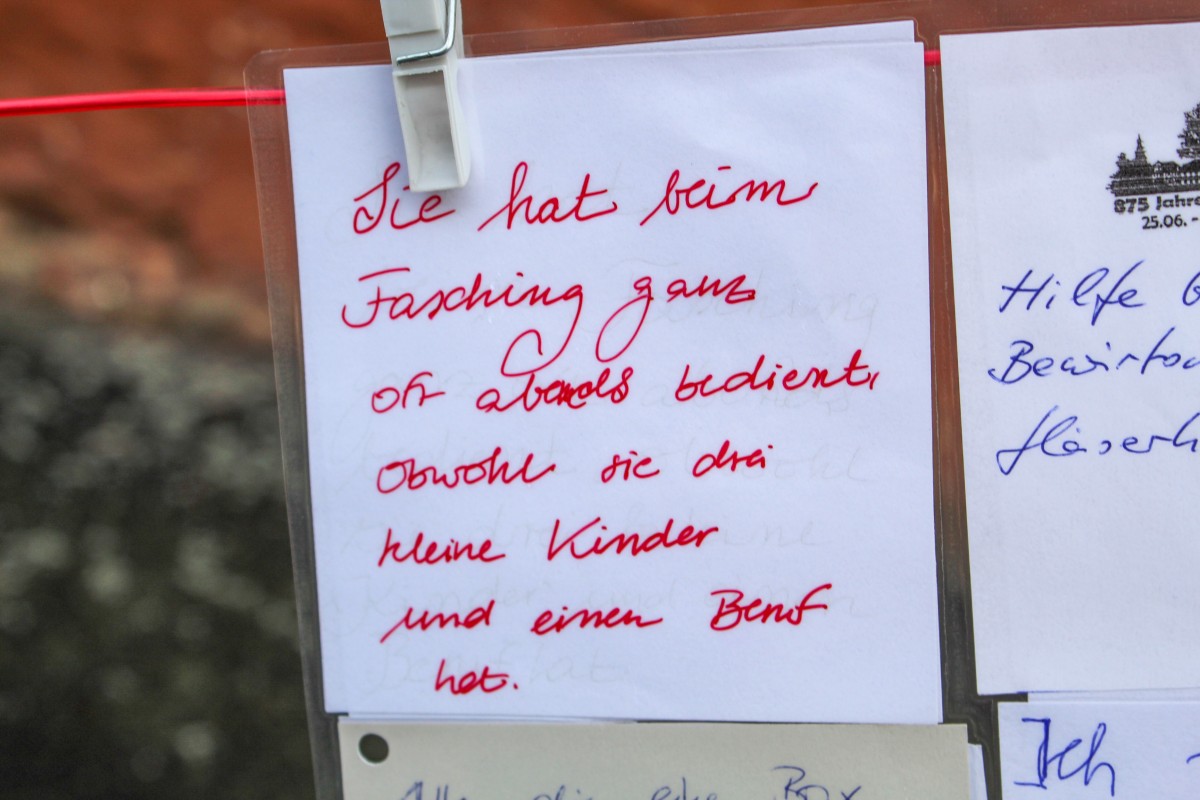 Sie hat beim
Fasching ganz
oft abends bedient,
obwohl sie drei
kleine Kinder
und einen Beruf
hat.
875 Jahre
25.06. -
Hilfe b
Bewirtu
Gläserh
Ich
Alle die eine Box